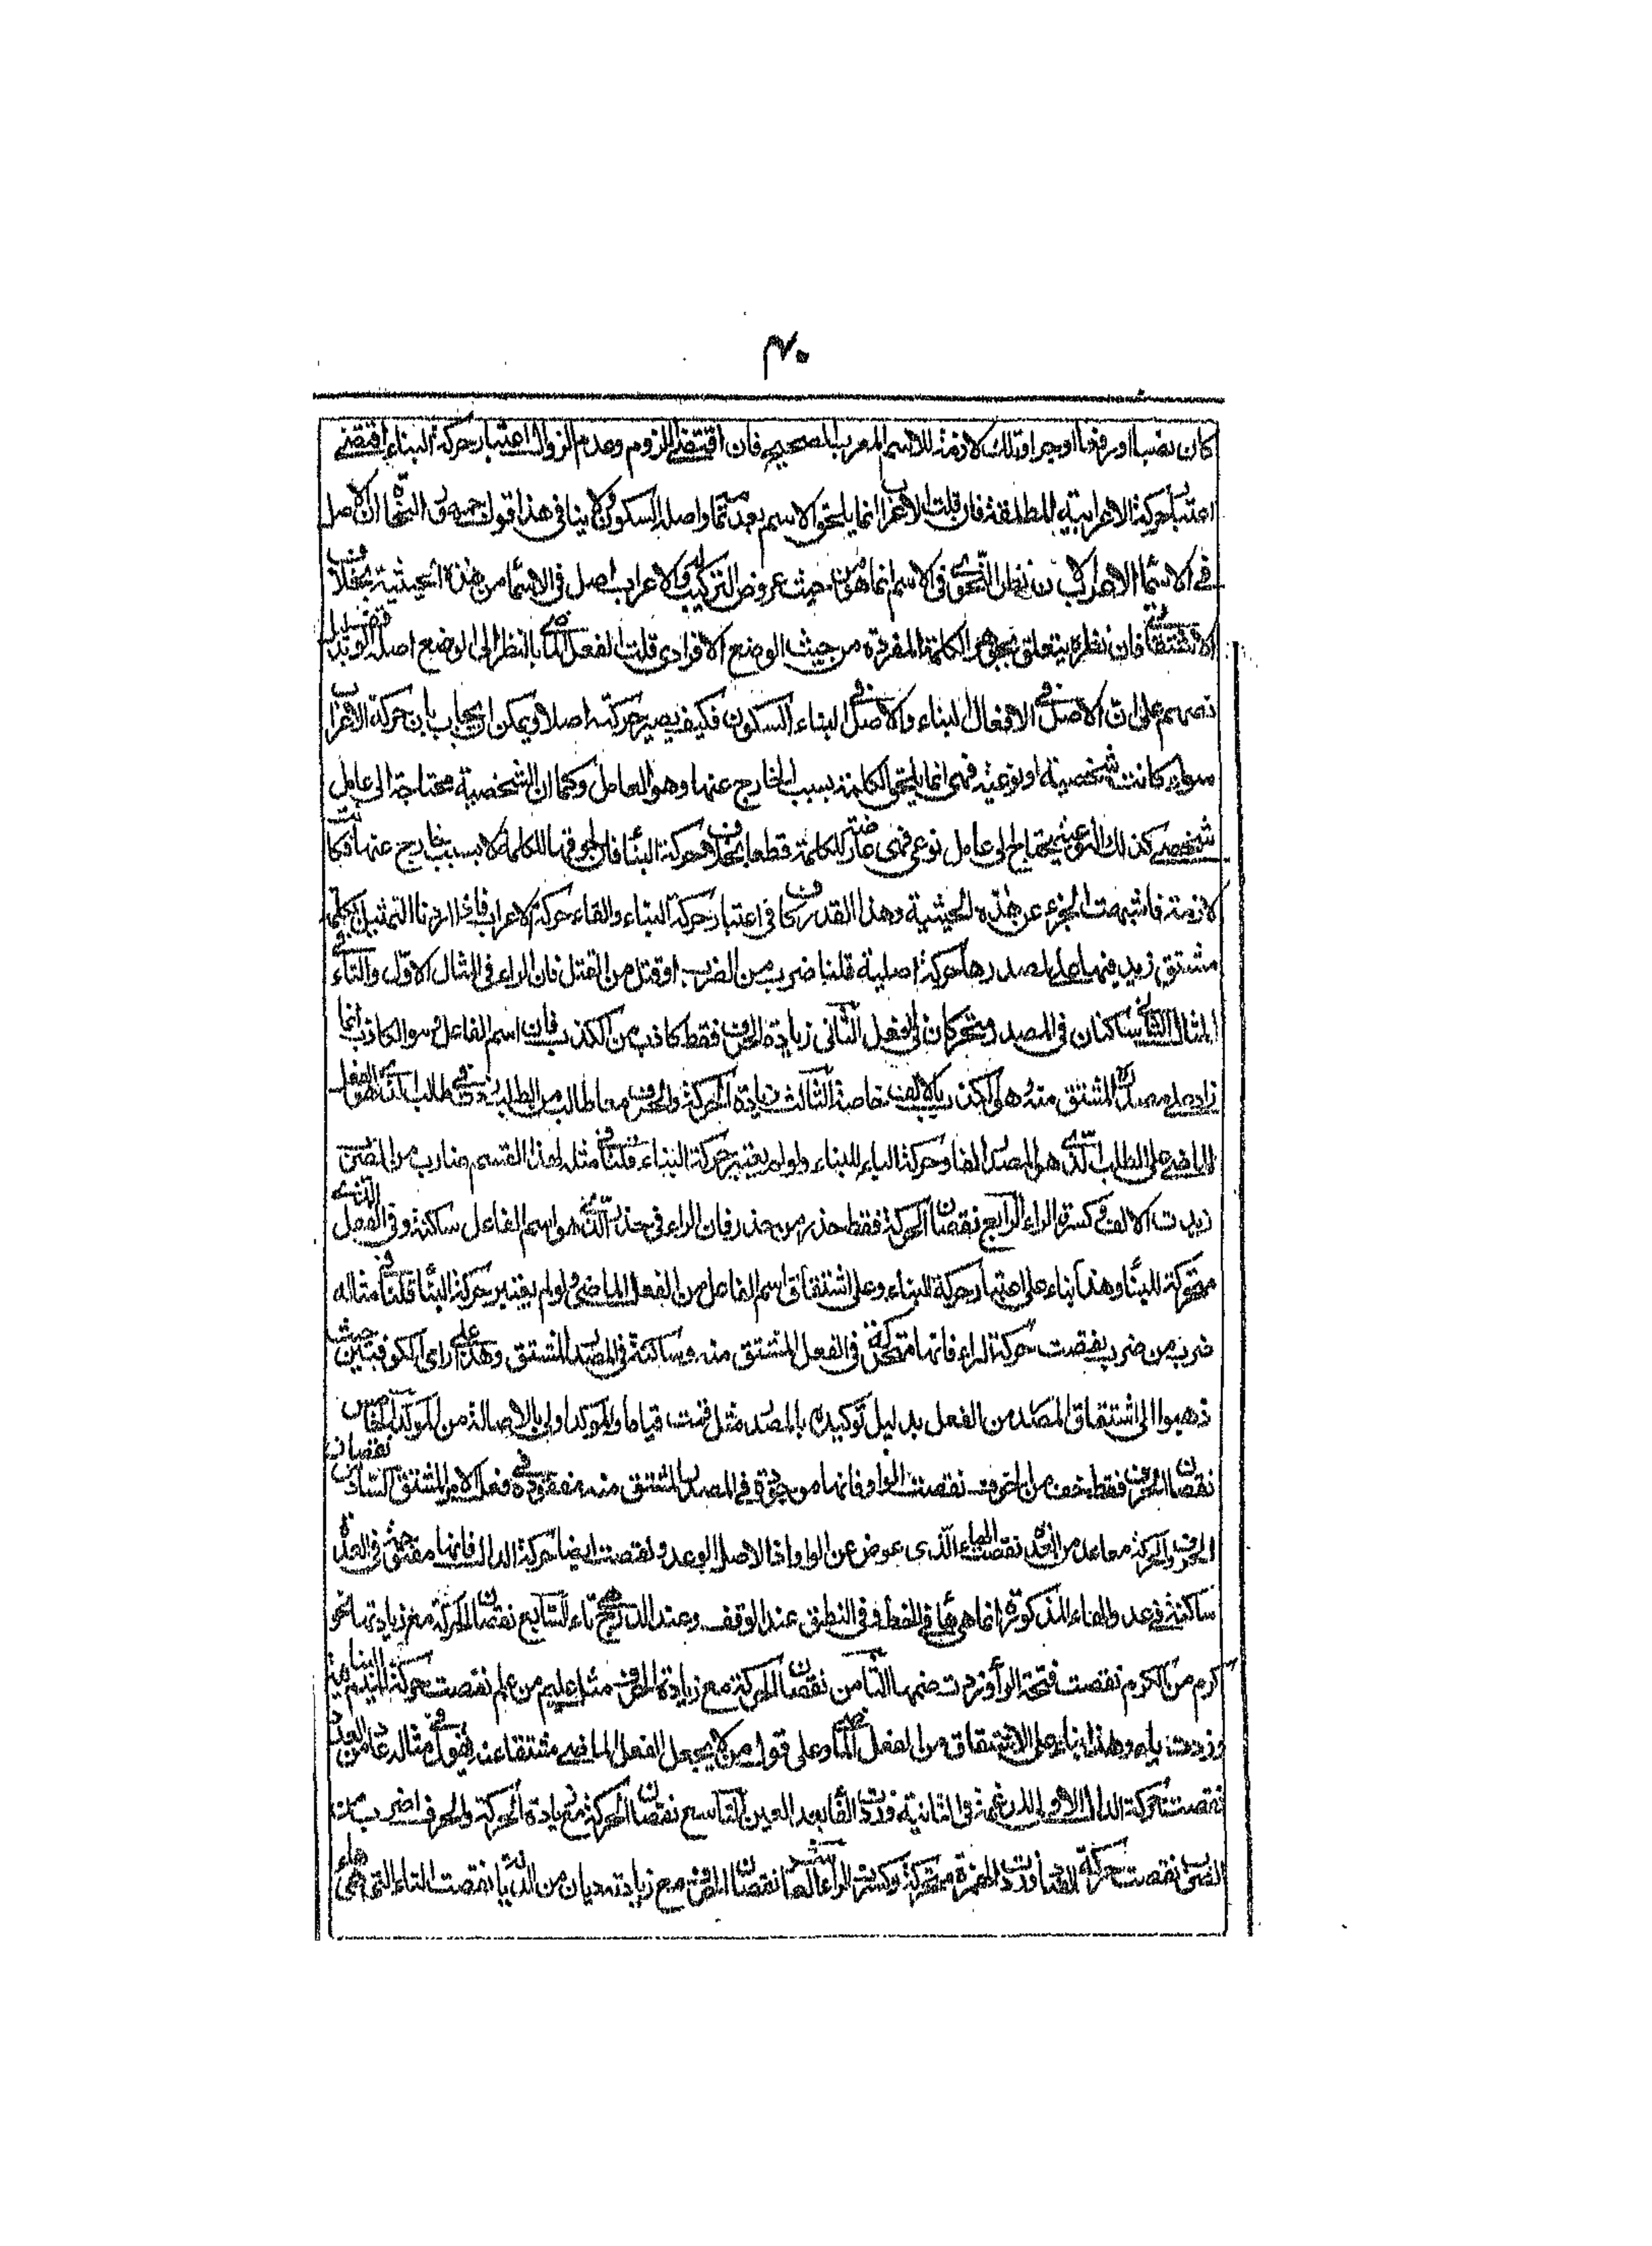 ٤٠
كان نصبا او رفعا او جرا وتلك لازمة للاسم المعرب الصحيح فان اقتضى اللزوم وعدم الزوال اعتبار حركة البناء اقتضى
اعتبار حركة الاعرابية المطلقة فان قلت الاعراب انما يلحق الاسم بعد تمامه واصله السكون ولا ينافى هذا قول جمهور النحاة ان الاصل
فى الاسماء الاعراب لان نظر النحوى فى الاسم انما هو من حيث عروض التركيب والاعراب اصل فى الاسماء من هذه الحيثية بخلاف
الاشتقاقى فان نظره يتعلق بجوهر الكلمة المفردة من حيث الوضع الافرادى قلت الفعل الماضى بالنظر الى الوضع اصله الوقف بدليل
نصهم على ان الاصل فى الافعال البناء والاصل فى البناء السكون فكيف يصير حركته اصلا ويمكن ان يجاب بان حركة الاعراب
سواء كانت شخصية او نوعية فهى انما يلحق الكلمة بسبب الخارج عنها وهو العامل وكما ان الشخصية محتاجة الى عامل
شخصى كذلك النوعية يحتاج الى عامل نوعى فهى عارضة للكلمة قطعا بخلاف حركة البناء فان لحوقها للكلمة لا بسبب خارج عنها فكانت
لازمة فاشبهت الجزء من هذه الحيثية وهذا القدر كاف فى اعتبار حركة البناء والغاء حركة الاعراب فاذا اردنا التمثيل بكلمة
مشتق زيد فيها على مصدرها حركة اصلية قلنا ضرب من الضرب او قتل من القتل فان الراء فى المثال الاول والتاء فى
المثال الثانى ساكنان فى المصدر ومتحركان فى الفعل الثانى زيادة الحرف فقط كاذب من الكذب فان اسم الفاعل وهو الكاذب انما
زاد على مصدره المشتق منه وهو الكذب بالالف خاصة الثالث زيادة الحركة والحرف معا طالب من الطلب زيد فى طالب الذى هو الفعل
الماضى على الطلب الذى هو المصدر الفا وحركة الباء للبناء ولو لم يعتبر حركة البناء قلنا فى مثل هذا القسم ضارب من الضرب
زيدت الالف وكسرة الراء الرابع نقصان الحركة فقط حذر من حذر فان الراء فى حذر الذى هو اسم الفاعل ساكنة وفى الفعل الذى
متحركة للبناء وهذا بناء على اعتبار حركة البناء وعلى اشتقاق اسم الفاعل من الفعل الماضى ولو لم يعتبر حركة البناء قلنا فى مثاله
ضرب من ضرب نقصت حركة الراء فانها متحركة فى الفعل المشتق منه وساكنة فى المصدر المشتق وهذا على راى الكوفيين حيث
ذهبوا الى اشتقاق المصدر من الفعل بدليل توكيده بالمصدر مثل قمت قياما والموكد اولى بالاصالة من الموكد الخامس
نقصان الحرف فقط خف من الخوف نقصت الواو فانها موجودة فى المصدر المشتق منه مفقودة فى فعل الامر المشتق السادس نقصان
الحرف والحركة معا عد من العدة نقصت الهاء الذى عوض عن الواو اذ الاصل الوعد ونقصت ايضا حركة الدال فانها مفتوحة فى العدة
ساكنة فى عد والهاء المذكورة انما هى هاء فى الخط وفى النطق عند الوقف وعند الدرج تاء السابع نقصان الحركة مع زيادتها نحو
كرم من الكرم نقصت فتحة الراء وزيدت ضمها الثامن نقصان الحركة مع زيادة الحرف مثل عليم من علم نقصت حركة الميم البنائية
وزيدت ياء وهذا بناء على الاشتقاق من الفعل الماضى وعلى قول من لا يجعل الفعل الماضى مشتقا عنه يقول فى مثاله عاد من العدد
نقصت حركة الدال الاولى المدغمة فى الثانية وزيدت الفا بعد العين التاسع نقصان الحركة مع زيادة الحركة والحرف اضرب من
الضرب نقصت حركة الضاد وزيدت الهمزة متحركة وكسرت الراء العاشر نقصان الحرف مع زيادته ديان من الديانة نقصت التاء التى هى هاء